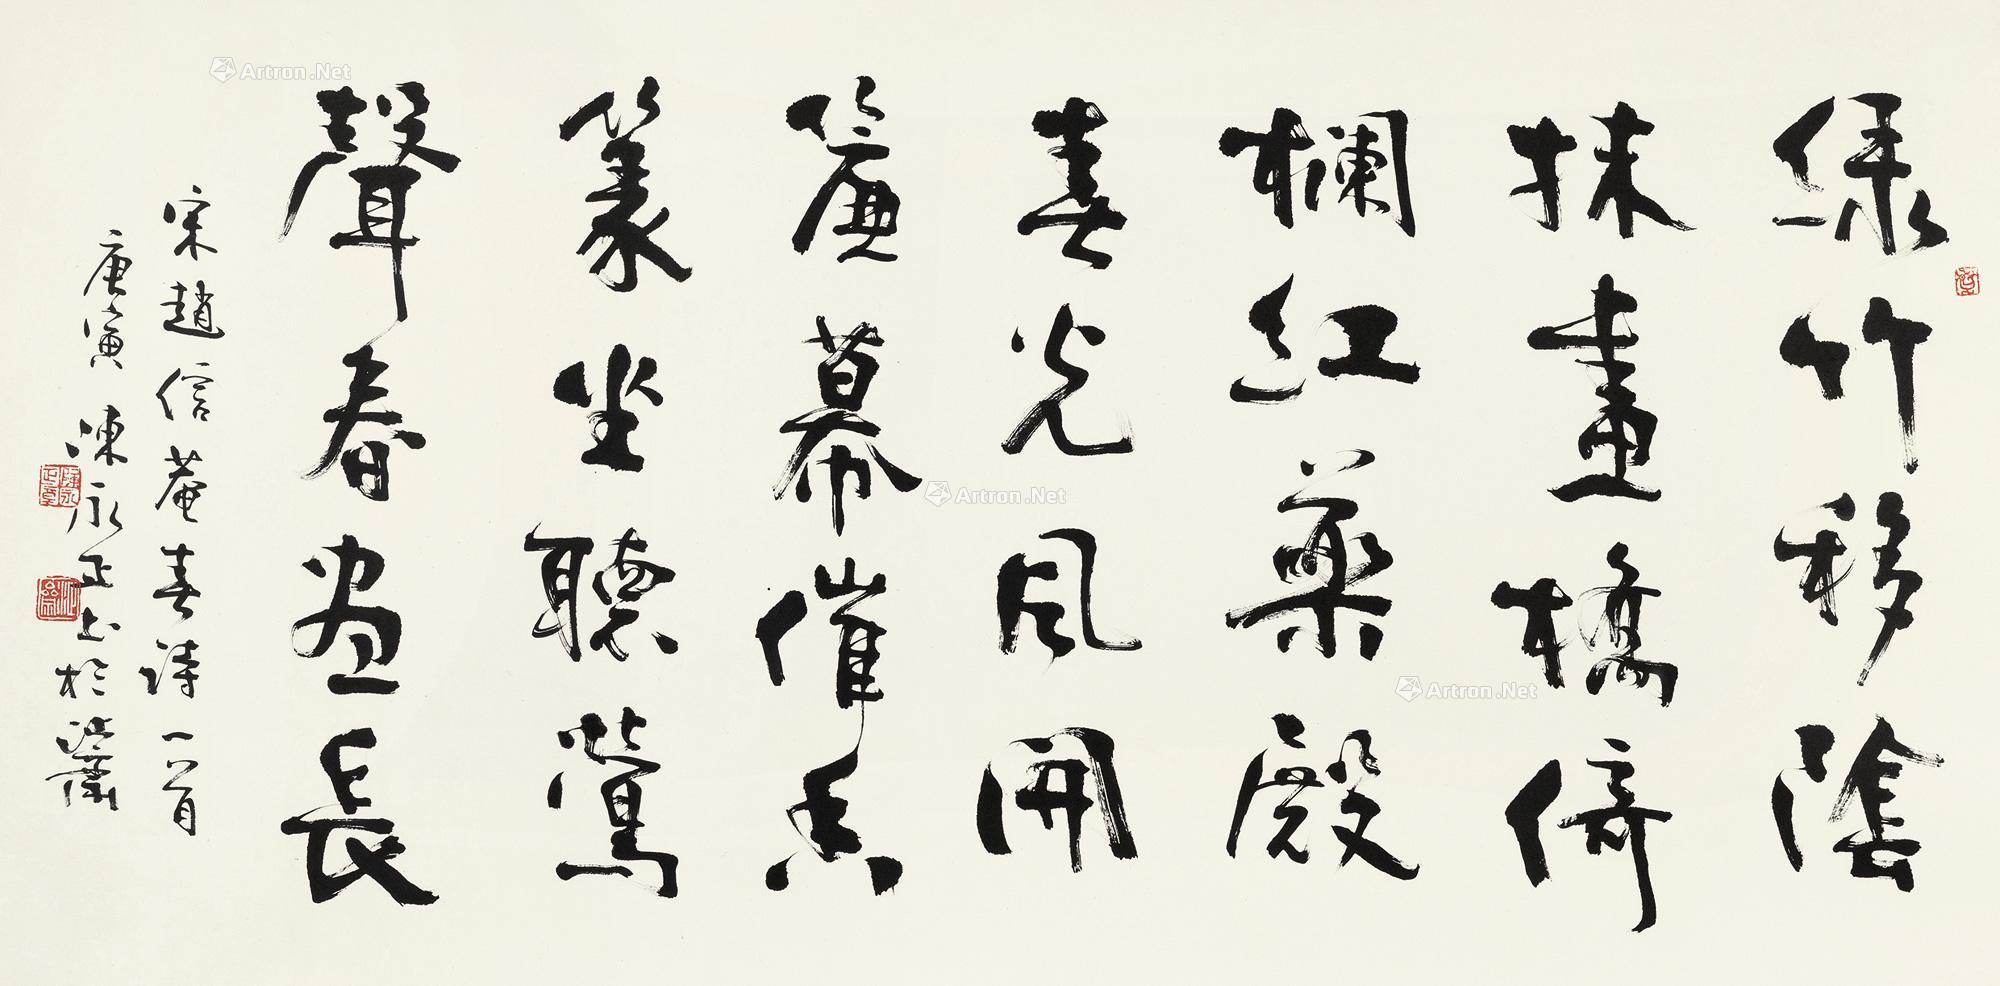 綠竹移陰
抹畫橋倚
欄紅藥殿
春光風開
簾幕催香
篆坐聽鶯
聲春昼長
宋趙信菴春詩一首
庚寅陳永正书於沚齋
Artron.Net
Artron.Net
Artron.Net